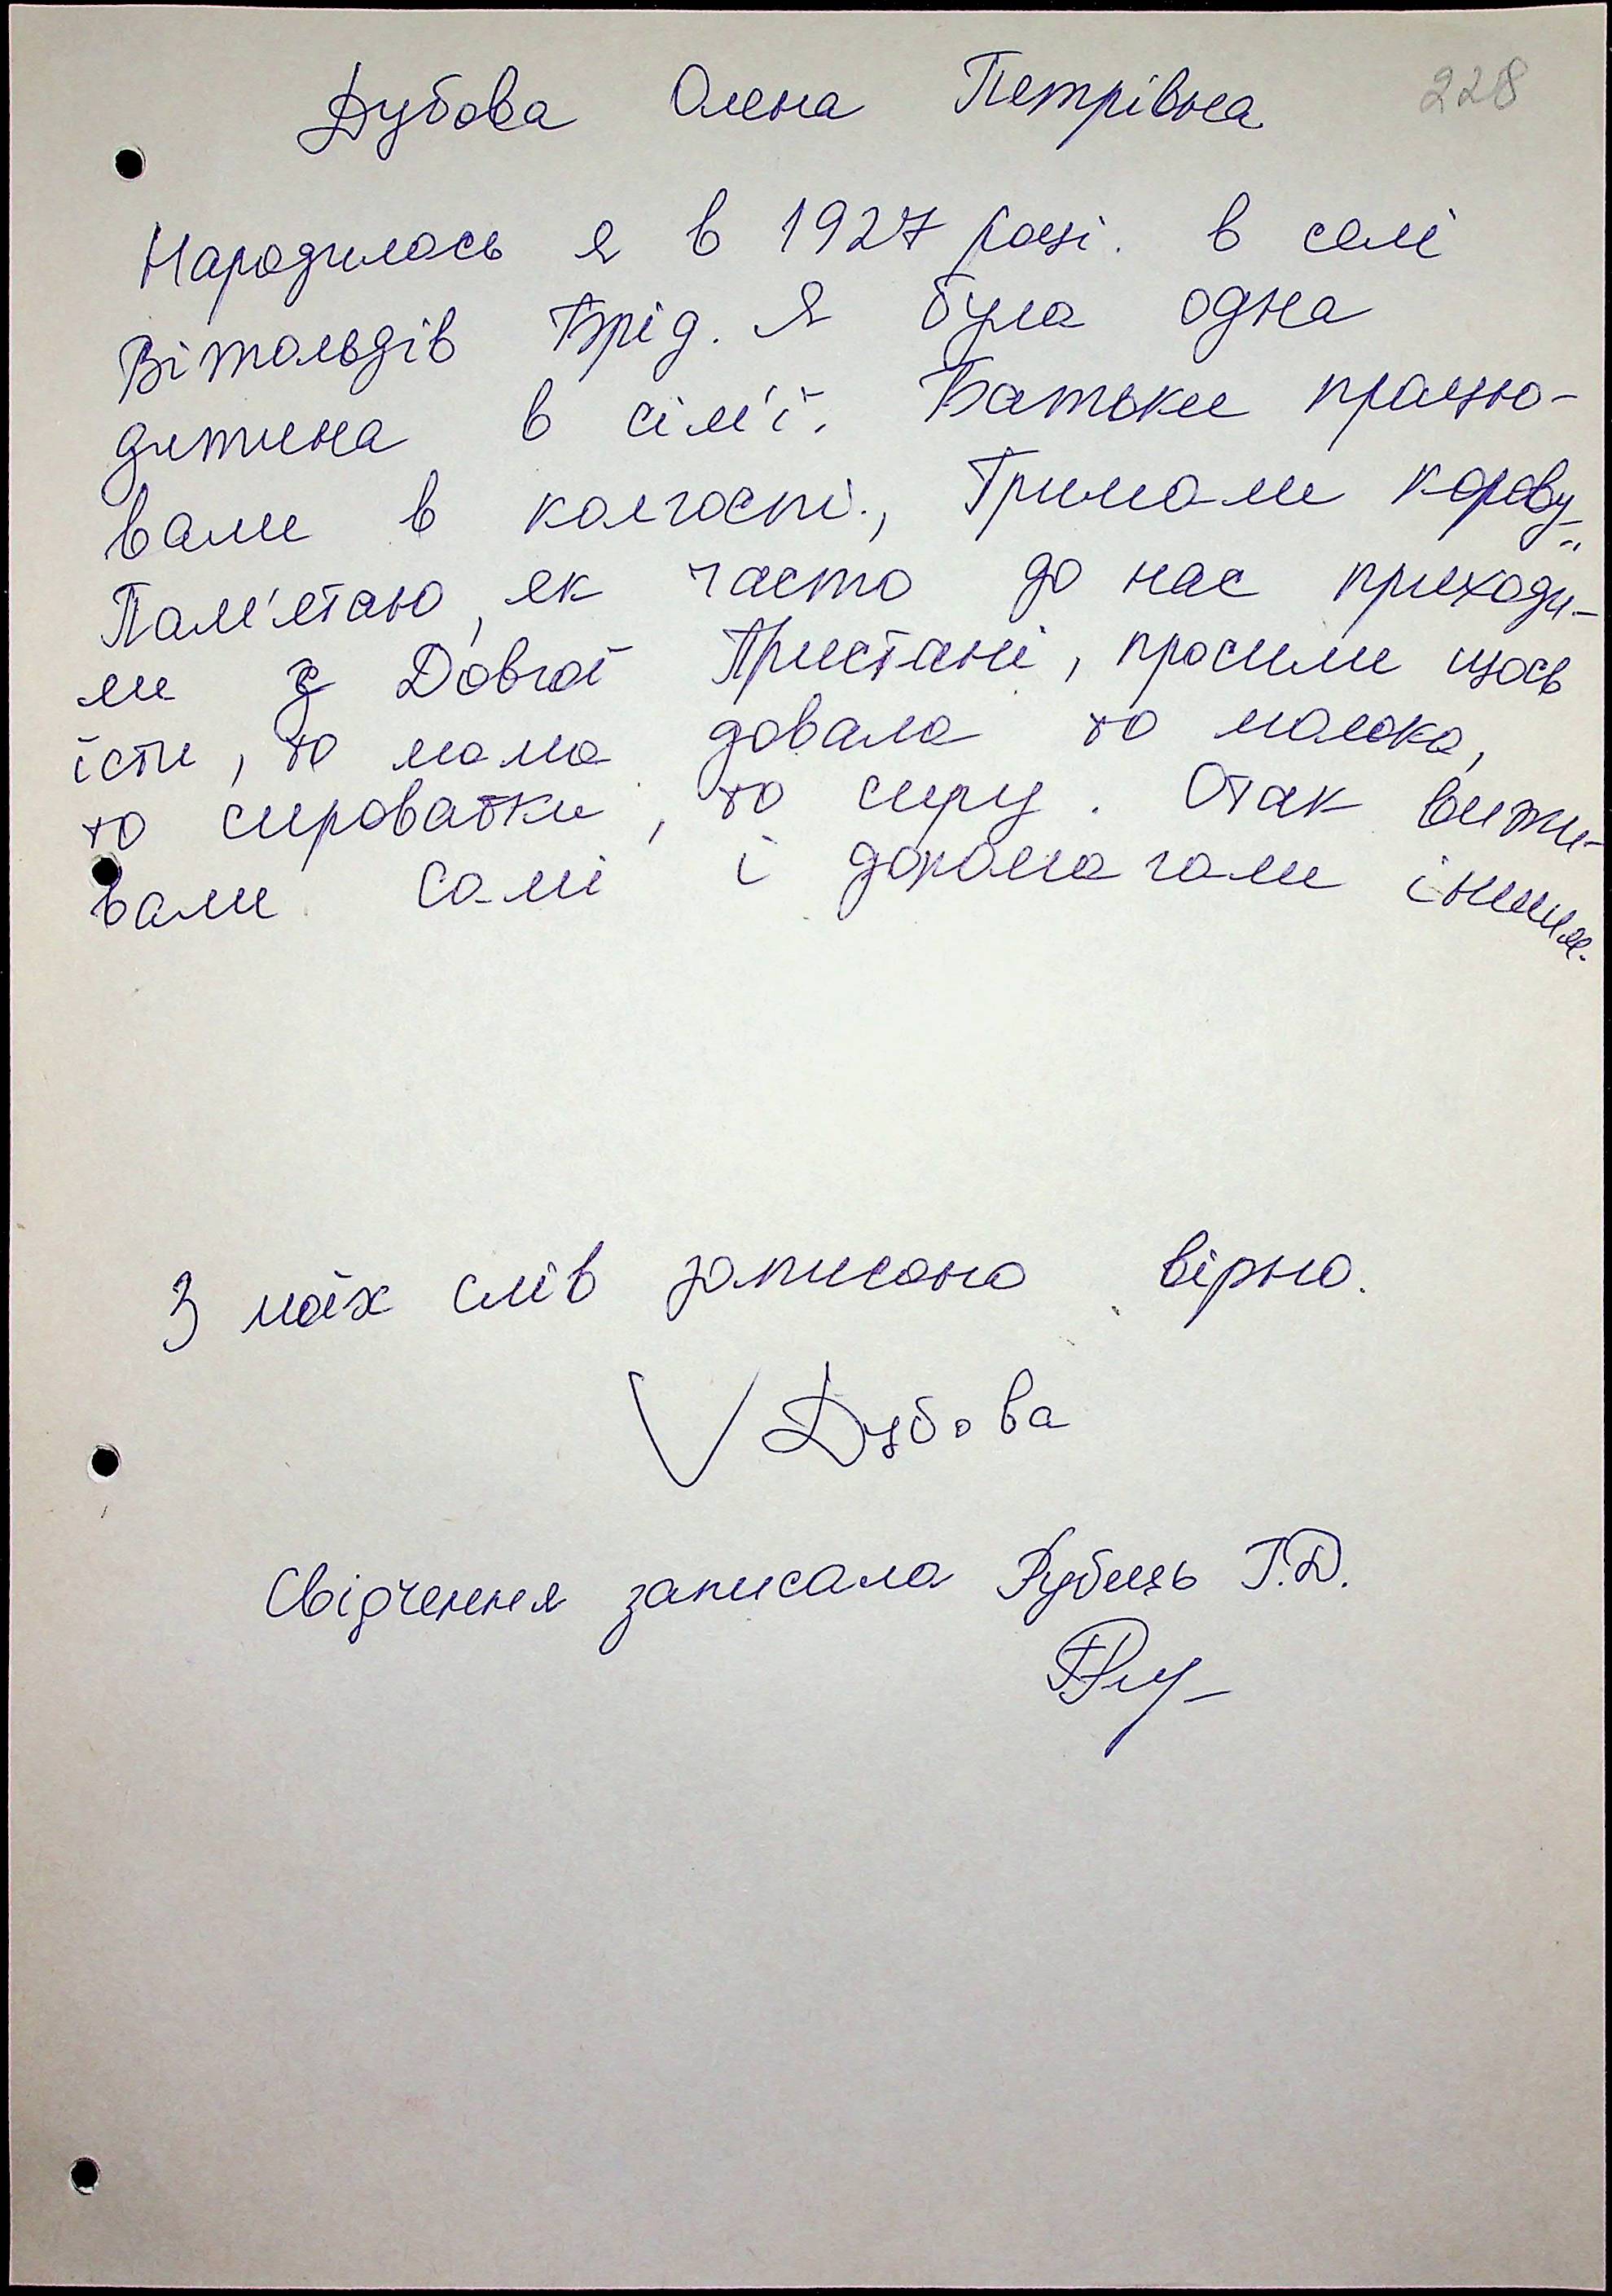 Дубова Олена Петрівна 228
Народилась я в 1927 році. в селі
Вітольдів Брід. Я була одна
дитина в сім'ї. Батьки працю-
вали в колгоспі., Тримали корову.
Пам'ятаю, як часто до нас приходи-
ли з Довгої Пристані, просили щось
їсти, то мама давала то молока,
то сироватки, то сиру. Отак вижи-
вали самі і допомагали іншим.
З моїх слів записано вірно.
V Дубова
Свідчення записала Рубець Г.Д.